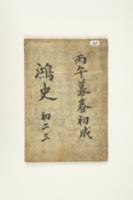 丙午暮春初成
鴻史 初二三